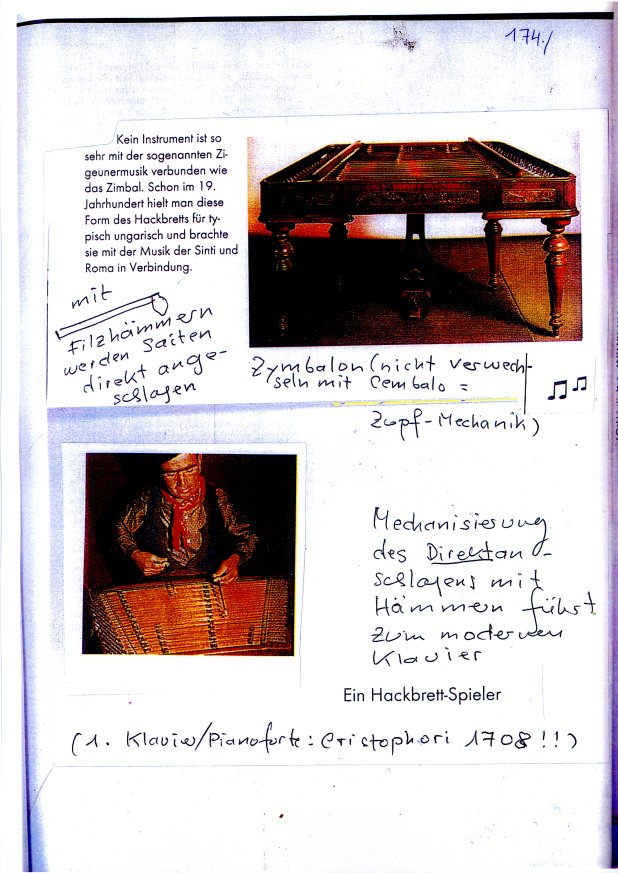 174./
Kein Instrument ist so
sehr mit der sogenannten Zi-
geunermusik verbunden wie
das Zimbal. Schon im 19.
Jahrhundert hielt man diese
Form des Hackbretts für ty-
pisch ungarisch und brachte
sie mit der Musik der Sinti und
Roma in Verbindung.
mit
Filzhämmern
werden Saiten
direkt ange-
schlagen
Zymbalon (nicht verwech-
seln mit Cembalo =
Zupf-Mechanik)
Mechanisierung
des Direktan-
schlagens mit
Hämmern führt
zum modernen
Klavier
Ein Hackbrett-Spieler
(1. Klavier/Pianoforte: Cristophori 1708!!)